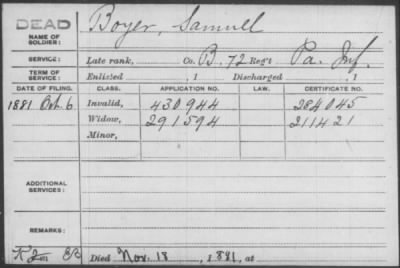 DEAD
NAME OF SOLDIER: Boyer, Samuel
SERVICE: Late rank, Co. B, 72 Reg't Pa. Inf.
TERM OF SERVICE: Enlisted , 1 Discharged , 1
DATE OF FILING. CLASS. APPLICATION NO. LAW. CERTIFICATE NO.
1881 Oct. 6 Invalid, 430944 284045
Widow, 291594 211421
Minor,
ADDITIONAL SERVICES:
REMARKS:
Died Nov. 18 , 1881, at